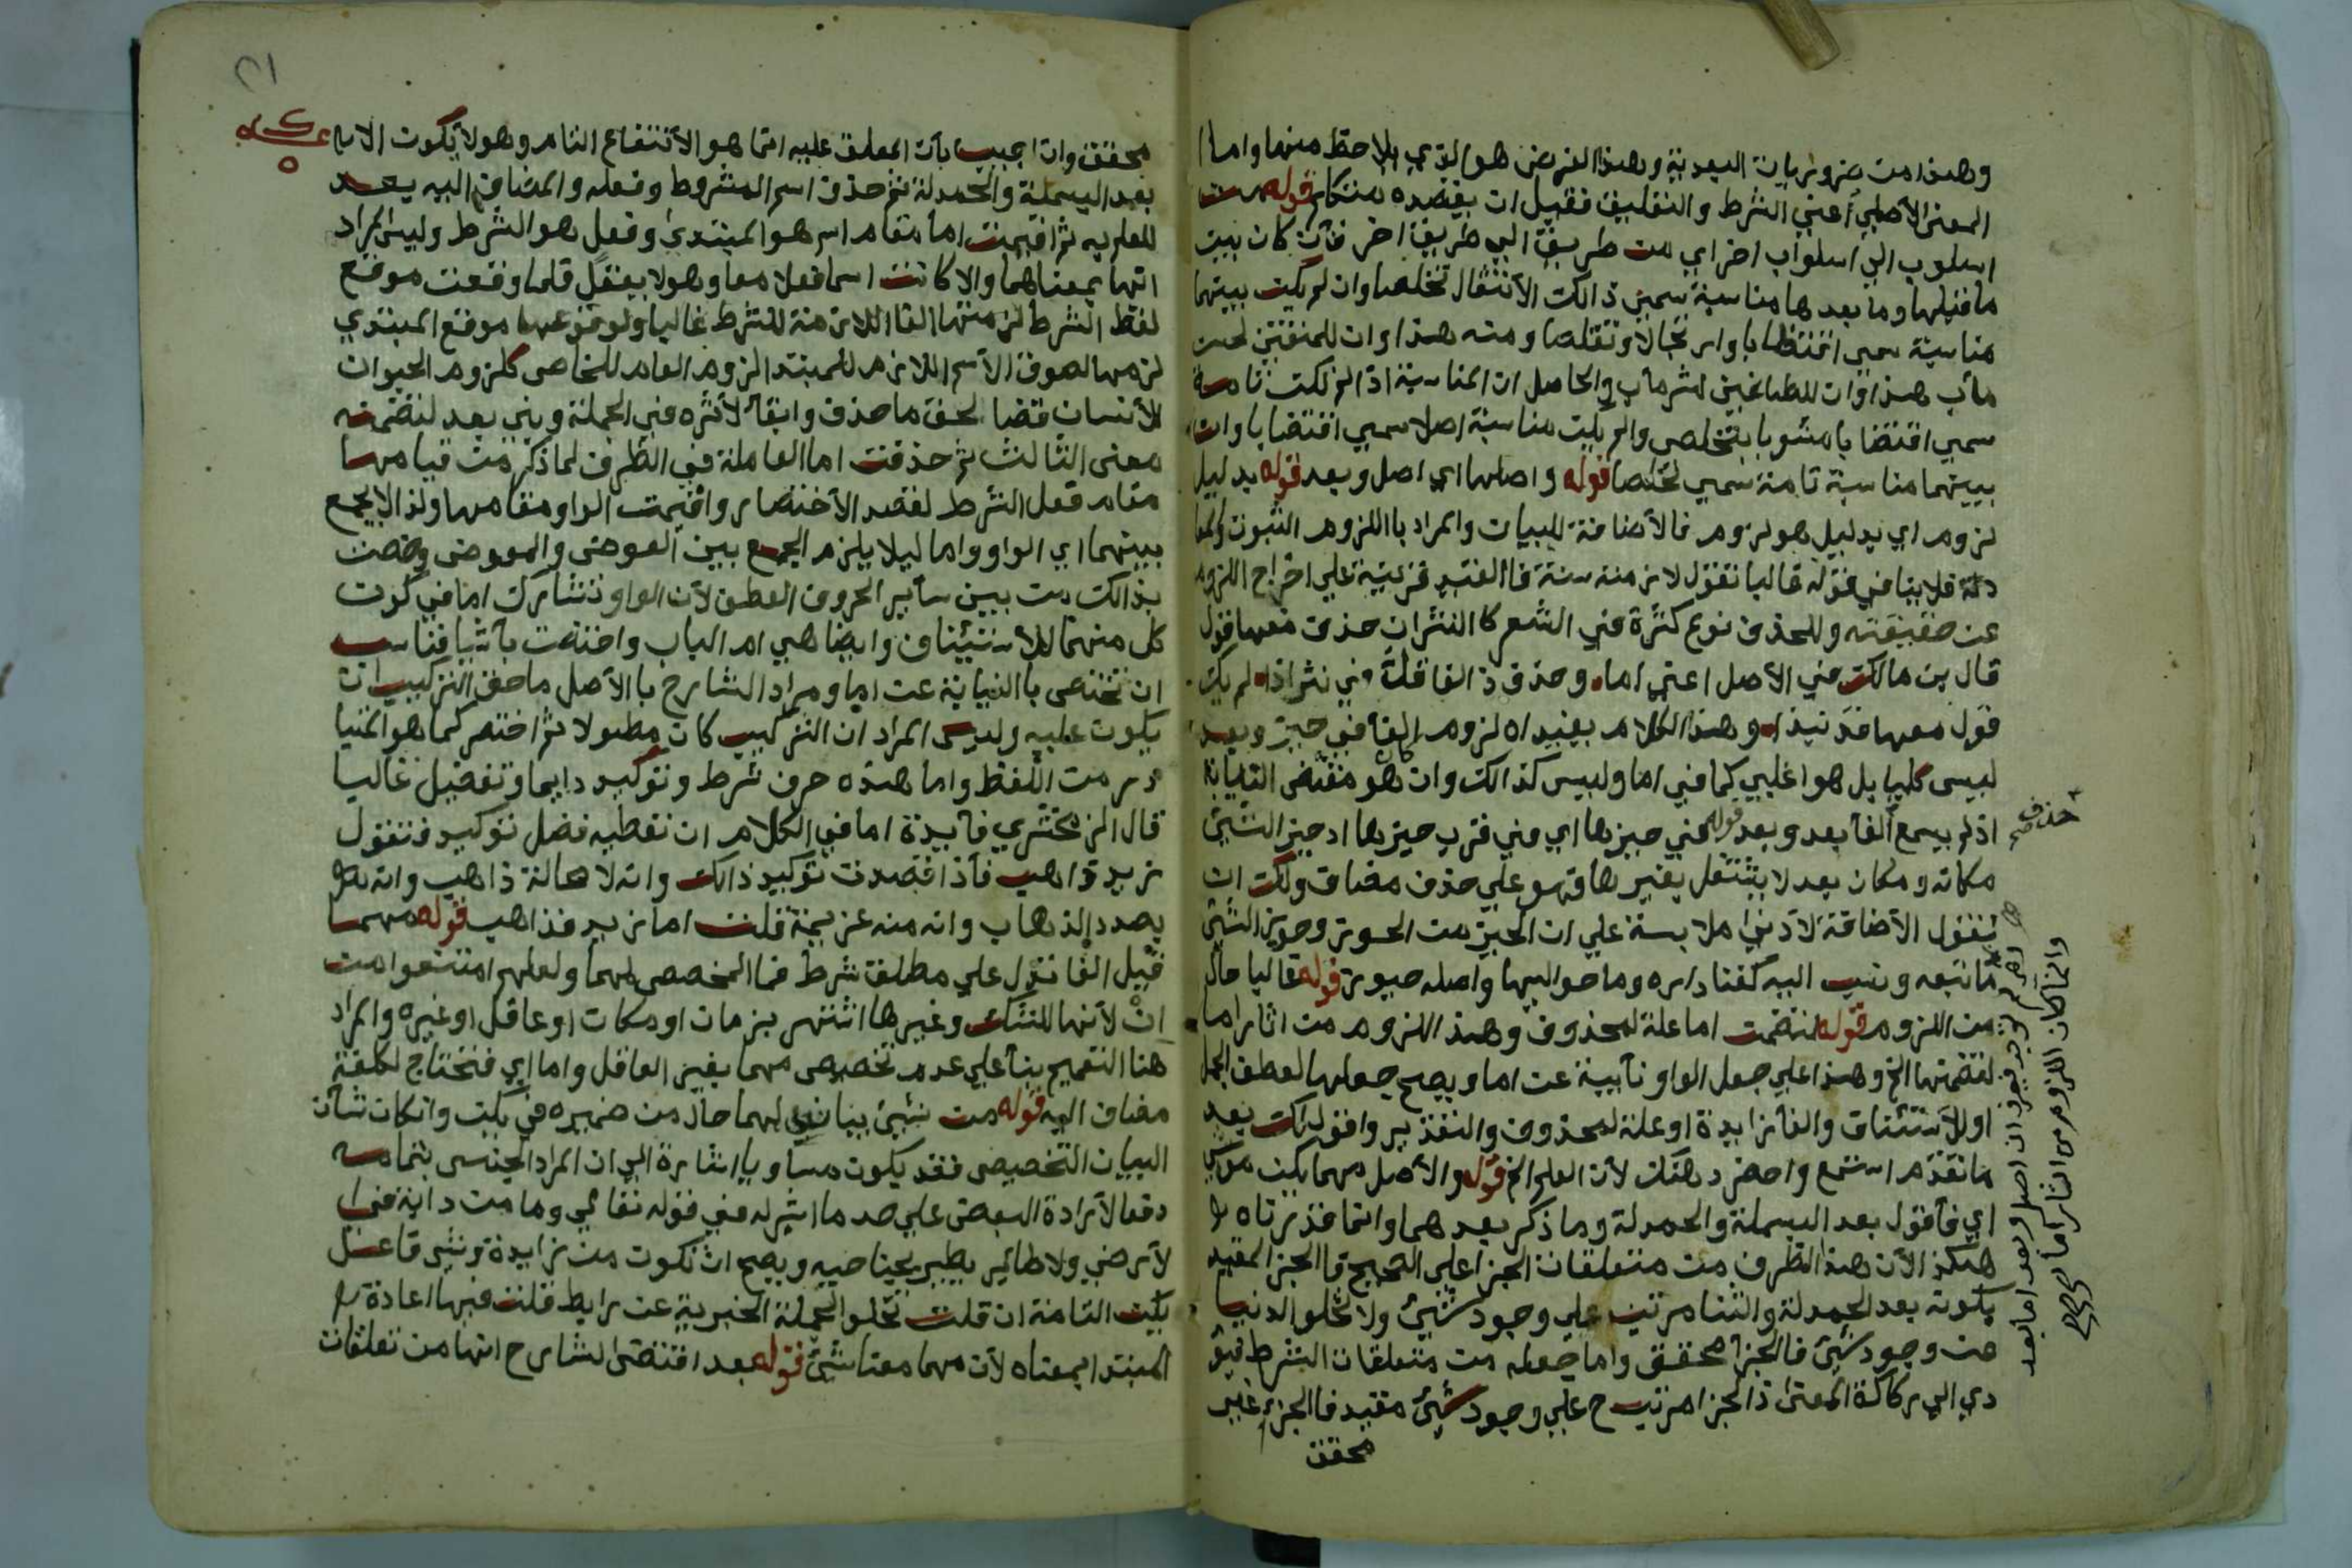 وهذا من ضروريات البعدية وهذا الغرض هو الذي يلاحظ منها واما
المعنى الأصلي أعني الشرط والتعليق فقيل ان يقصده متكلم قوله من
اسلوب الي اسلواب اخر اي من طريقة الي طريقة اخر فأن كان بين
ماقبلها وما بعدها مناسبة سمي ذالك الأنتقال تخلصا وان لم يكن بينهما
مناسبة سمي اقتضابا وارتجالا ومنه هذا وان للمتقين لحسن
مأب هذا وان للطاغين لشر مأب والحاصل ان المناسبة اذا لم تكن تامة
سمي اقتضابا مشوبا بتخلص والم يكن مناسبة اصلا سمي اقتضابا وان
بينهما مناسبة تامة سمي تخلصا قوله واصلها اي اصل وبعد قوله بدليل
لزوم اي بدليل هو لزوم فالأضافة للبيان والمراد باللزوم الثبوت
فلا ينافي قوله غالبا نقول لازمته سنة فالقيد قرينة علي اخراج اللزوم
عن حقيقته وللحذف نوع كثرة في الشعر كالنثر ان حذف معها قول
قال بن مالك في الأصل اعني اما وحذف ذي الفا قل في نثر اذا لم يك
قول معها قد نبذا وهذا الكلام يفيد ان لزوم الفأ في حيز وبعد
ليس كليا بل هو اغلبي كما في اما وليس كذالك وان كان هو مقتضى النيابة
اذ لم يسمع حذف الفأ بعد وبعد قوله في حيزها اي في قرب حيزها اذ حيز الشيئ
مكانه ومكان بعد لا يشتغل بغيرها فهو علي حذف مضاف ولك ان
تقول الأضافة لأدنى ملابسة علي ان الحيز من الحوز وحوز الشيئ
ماتبعه ونسب اليه كفنا داره وما حواليها واصله حيوز قوله غاليا حال
من اللزوم قوله لتضمن اما علة لمحذوف وهذا اللزوم من اثار اما
لتضمنها الخ وهذا علي جعل الواو نأيبة عن اما ويصح جعلها لعطف الجمل
او للأستئناف والفأ زايدة او علة لمحذوف والتقدير واقول لك بعد
ماتقدم استمع واحضر ذهنك لأن العلم الخ قوله والأصل مهما يكن من شيئ
اي فأقول بعد البسملة والحمدلة وما ذكر بعدهما وانما قدرناه
هكذا لأن هذا الظرف من متعلقات الجزا علي الصحيح فا الجزا المقيد
بكونه بعد الحمدلة والثنا مرتب علي وجود شيئ ولا تخلو الدنيا
من وجود شيئ فالجزأ محقق واما جعله من متعلقات الشرط فيؤ
دي الي ركاكة المعنى اذ الجزا مرتب ح علي وجود شيئ مقيد فا الجزأ غير
محقق
حذف صح
وانما كان اللزوم من اثار اما
محقق وان اجيب بأن المعلق عليه انما هو الأنتفاع التام وهو لا يكون الا
بعد البسملة والحمدلة ثم حذف اسم الشرط وفعله والمضاف اليه بعد
للعلم به ثم اقيمت اما مقام اسم هو المبتدئ وفعل هو الشرط وليس المراد
انها بمعناهما والا كانت اسما فعلا معا وهو لا يعقل فلما وقعت موقع
لفظ الشرط لزمتها الفا اللازمة للشرط غاليا ولوقوعها موقع المبتدي
لزمها لصوق الأسم اللازم للمبتدا لزوم العام للخاص كلزوم الحيوان
للأنسان قضا لحق ما حذف وابقأ لأثره في الجملة وبني بعد لتضمنه
معنى الثالث ثم حذفت اما العاملة في الظرف لما ذكر من قيامها
مقام فعل الشرط لقصد الأختصار واقيمت الواو مقامها ولذا لا يجمع
بينهما اي الواو واما ليلا يلزم الجمع بين العوض والمعوض وخصت
بذالك من بين سأير الحروف العطف لأن الواو تشارك اما في كون
كل منهما للأستيناف وايضا هي ام الباب واختصت بأشيا فناسب
ان تختص با النيابة عن اما ومراد الشارح با الأصل ما حق التركيب ان
يكون عليه وليس المراد ان التركيب كان مطولا ثم اختصر كما هو المتبا
در من اللفظ واما هذه حرف شرط وتوكيد دايما وتفصيل غاليا
قال الزمخشري فأيدة اما في الكلام ان تعطيه فضل توكيد فتقول
زيد ذاهب فأذا قصدت توكيد ذالك وانه لا محالة ذاهب وانه
بصدد الذهاب وانه منه عزيمة قلت اما زيد فذاهب قوله مهما
قيل الفا تدل علي مطلق شرط فما المخصص لمهما ولعلهم امتنعوا من
ان لأنها للشك وغيرها اشتهر بزمان او مكان او عاقل او غيره والمراد
هنا التعميم بنأ علي عدم تخصيص مهما بغير العاقل واما اي فتحتاج لكلفة
مضاف اليه قوله من شيئ بيان لمهما حال من ضميره في يكن وانكان شأن
البيان التخصيص فقد يكون مساويا اشارة الي ان المراد الجنس بتمامه
دفعا لأرادة البعض علي حد ما اشير له في قوله تعالي وما من دابة في
لأرض ولا طائير يطير بجناحيه ويصح ان تكون من زايدة وشي فاعل
يكن التامة ان قلت تخلو الجملة الخبرية عن رابط قلت فيها اعادة
المبتدا بمعناه لأن مهما معناه شيئ قوله بعد اقتضى الشارح انها من تعلقات